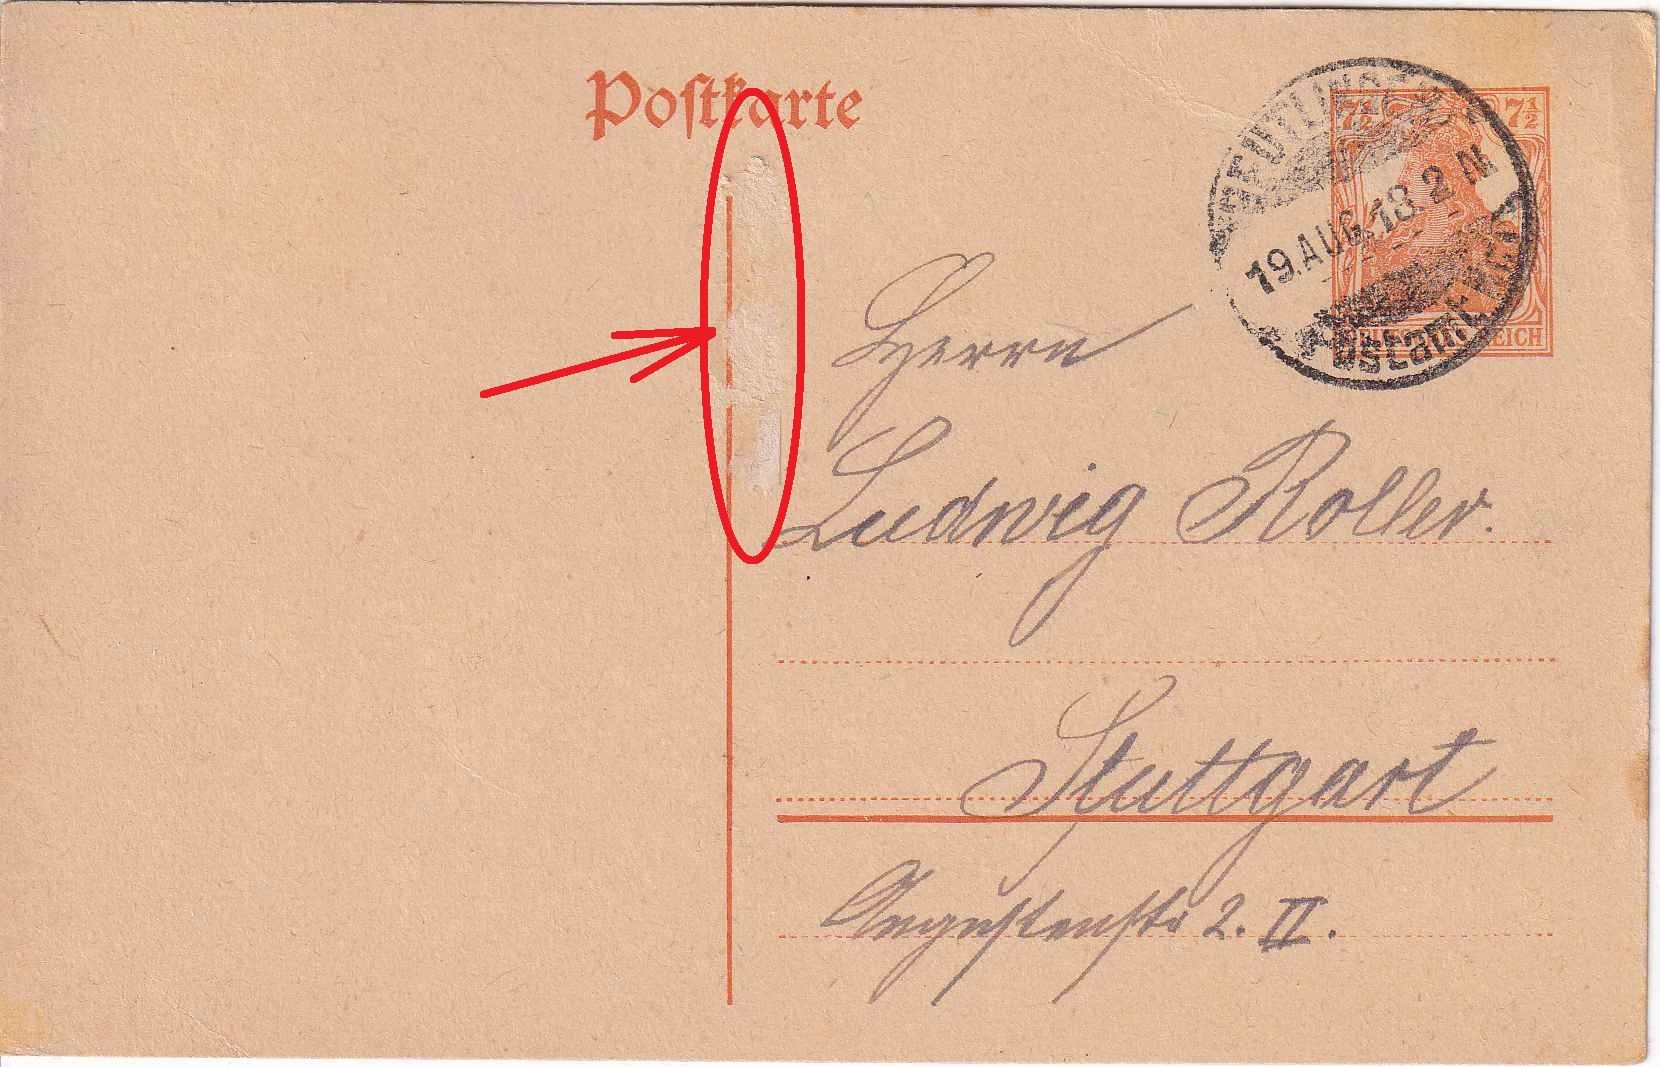 Postkarte
7½ 7½
REUTLINGEN
19.AUG.18.2 N
Postamt
REICH
Herrn
Ludwig Roller.
Stuttgart
Augustenstr 2. II.